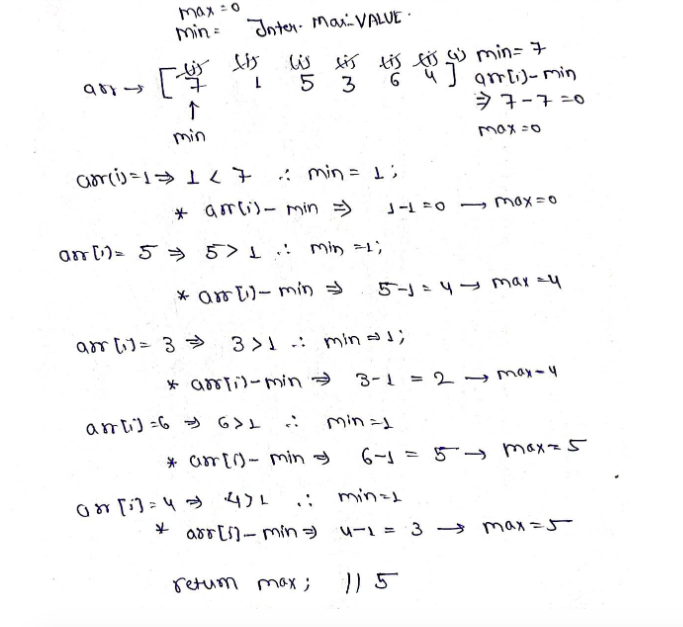 max = 0
min = Inter. Max_VALUE.
arr → [ 7 1 5 3 6 4 ] min = 7
arr[i] - min
⇒ 7 - 7 = 0
↑
min
max = 0
arr(i) = 1 ⇒ 1 < 7 ∴ min = 1;
* arr(i) - min ⇒ 1-1 = 0 → max = 0
arr[i] = 5 ⇒ 5 > 1 ∴ min = 1;
* arr[i] - min ⇒ 5-1 = 4 → max = 4
arr[i] = 3 ⇒ 3 > 1 ∴ min ⇒ 1;
* arr[i] - min ⇒ 3-1 = 2 → max - 4
arr[i] = 6 ⇒ 6 > 1 ∴ min = 1
* arr[i] - min ⇒ 6-1 = 5 → max = 5
arr[i] = 4 ⇒ 4 > 1 ∴ min = 1
* arr[i] - min ⇒ 4-1 = 3 → max = 5
return max; // 5